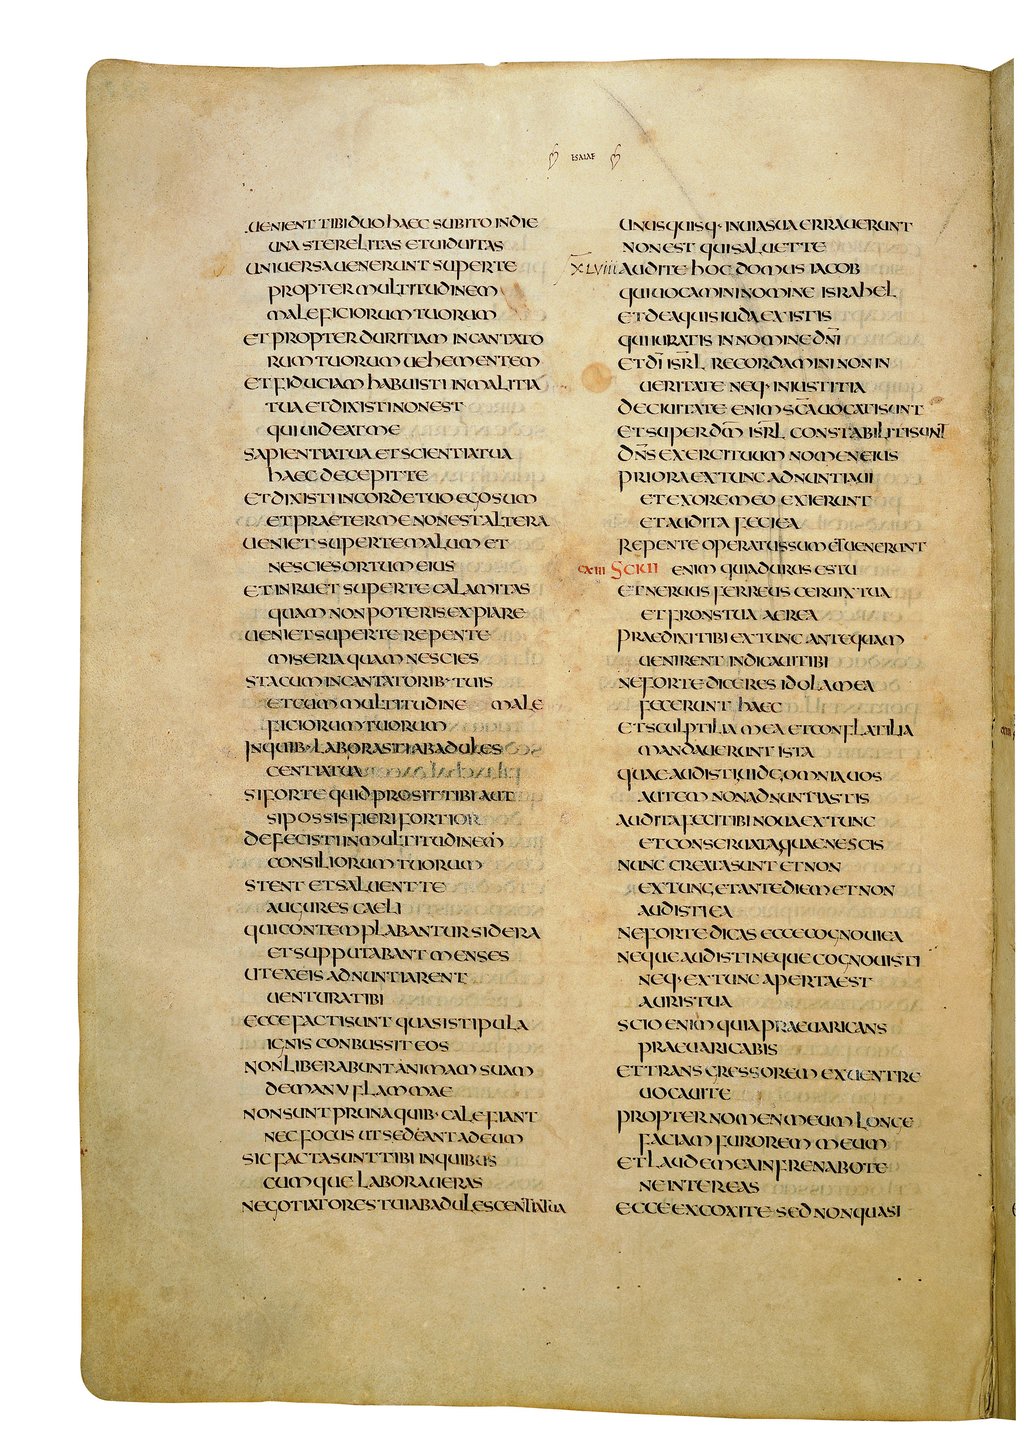 ESAIAE
UENIENT TIBI DUO HAEC SUBITO IN DIE
UNA STERELITAS ET UIDUITAS
UNIUERSA UENERUNT SUPER TE
PROPTER MULTITUDINEM
MALEFICIORUM TUORUM
ET PROPTER DURITIAM INCANTATO
RUM TUORUM UEHEMENTEM
ET FIDUCIAM HABUISTI IN MALITIA
TUA ET DIXISTI NON EST
QUI UIDEAT ME
SAPIENTIA TUA ET SCIENTIA TUA
HAEC DECEPIT TE
ET DIXISTI IN CORDE TUO EGO SUM
ET PRAETER ME NON EST ALTERA
UENIET SUPER TE MALUM ET
NESCIES ORTUM EIUS
ET INRUET SUPER TE CALAMITAS
QUAM NON POTERIS EXPIARE
UENIET SUPER TE REPENTE
MISERIA QUAM NESCIES
STA CUM INCANTATORIB· TUIS
ET CUM MULTITUDINE MALE
FICIORUM TUORUM
IN QUIB· LABORASTI AB ADULES
CENTIA TUA
SI FORTE QUID PROSIT TIBI AUT
SI POSSIS FIERI FORTIOR
DEFECISTI IN MULTITUDINEM
CONSILIORUM TUORUM
STENT ET SALUENT TE
AUGURES CAELI
QUI CONTEMPLABANTUR SIDERA
ET SUPPUTABANT MENSES
UT EX EIS ADNUNTIARENT
UENTURA TIBI
ECCE FACTI SUNT QUASI STIPULA
IGNIS CONBUSSIT EOS
NON LIBERABUNT ANIMAM SUAM
DE MANU FLAMMAE
NON SUNT PRUNA QUIB· CALEFIANT
NEC FOCUS UT SEDEANT AD EUM
SIC FACTA SUNT TIBI IN QUIBUS
CUMQUE LABORAUERAS
NEGOTIATORES TUI AB ADULESCENTIA TUA
UNUSQUISQ· IN UIA SUA ERRAUERUNT
NON EST QUI SALUET TE
XLVIII AUDITE HOC DOMUS IACOB
QUI UOCAMINI NOMINE ISRAHEL
ET DE AQUIS IUDA EXISTIS
QUI IURATIS IN NOMINE DN̄I
ET DĪ ISR̄L RECORDAMINI NON IN
UERITATE NEQ· IN IUSTITIA
DE CIUITATE ENIM SC̄A UOCATI SUNT
ET SUPER DM̄ ISR̄L CONSTABILITI SUNT
DN̄S EXERCITUUM NOMEN EIUS
PRIORA EX TUNC ADNUNTIAUI
ET EX ORE MEO EXIERUNT
ET AUDITA FECI EA
REPENTE OPERATUS SUM ET UENERUNT
CXIII SCIUI ENIM QUIA DURUS ES TU
ET NERUUS FERREUS CERUIX TUA
ET FRONS TUA AEREA
PRAEDIXI TIBI EX TUNC ANTEQUAM
UENIRENT INDICAUI TIBI
NE FORTE DICERES IDOLA MEA
FECERUNT HAEC
ET SCULPTILIA MEA ET CONFLATILIA
MANDAUERUNT ISTA
QUAE AUDISTI UIDE OMNIA UOS
AUTEM NON ADNUNTIASTIS
AUDITA FECI TIBI NOUA EX TUNC
ET CONSERUATA QUAE NESCIS
NUNC CREATA SUNT ET NON
EX TUNC ET ANTE DIEM ET NON
AUDISTI EA
NE FORTE DICAS ECCE COGNOUI EA
NEQUE AUDISTI NEQUE COGNOUISTI
NEQ· EX TUNC APERTA EST
AURIS TUA
SCIO ENIM QUIA PRAEUARICANS
PRAEUARICABIS
ET TRANSGRESSOREM EX UENTRE
UOCAUI TE
PROPTER NOMEN MEUM LONGE
FACIAM FUROREM MEUM
ET LAUDE MEA INFRENABO TE
NE INTEREAS
ECCE EXCOXI TE SED NON QUASI